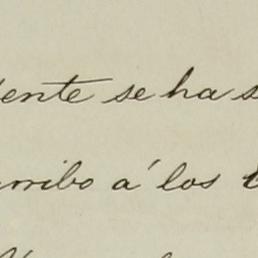 ente se ha s
rribo á los